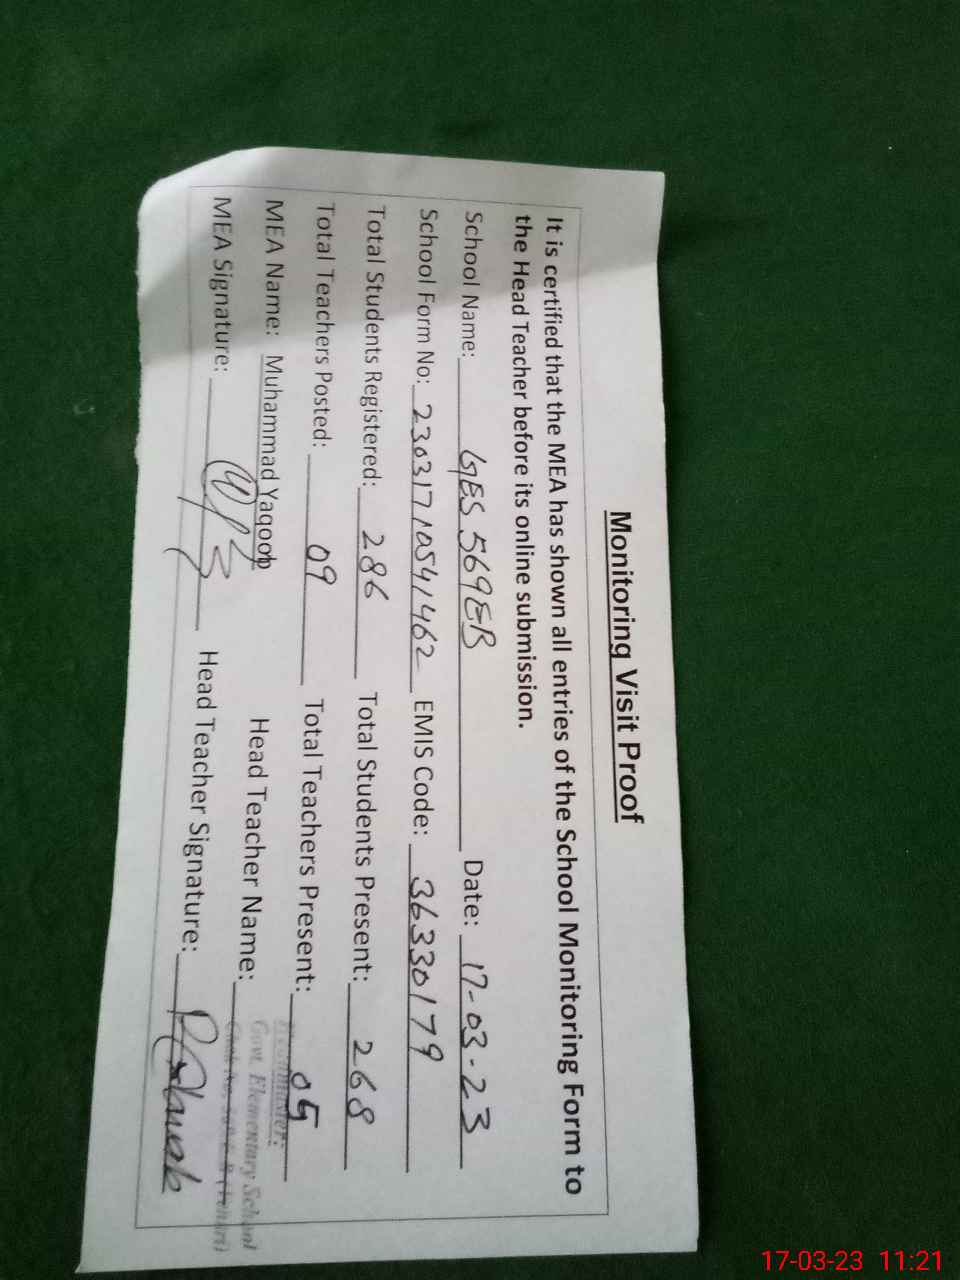 Monitoring Visit Proof
It is certified that the MEA has shown all entries of the School Monitoring Form to
the Head Teacher before its online submission.
School Name: GES 569EB Date: 17-03-23
School Form No: 23031710541462 EMIS Code: 36330179
Total Students Registered: 286 Total Students Present: 268
Total Teachers Posted: 09 Total Teachers Present: 05
MEA Name: Muhammad Yaqoob Head Teacher Name:
Govt. Elementary School
MEA Signature: Head Teacher Signature:
17-03-23 11:21